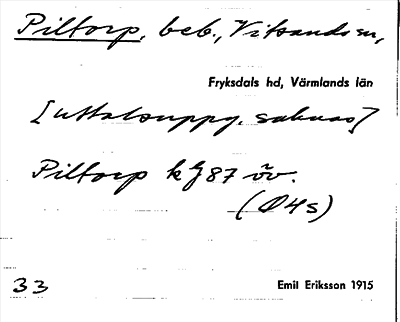 Piltorp, beb., Vitsands sn,
Fryksdals hd, Värmlands län
[uttalsuppg. saknas]
Piltorp kJ87 öv.
(Ö4s)
33
Emil Eriksson 1915